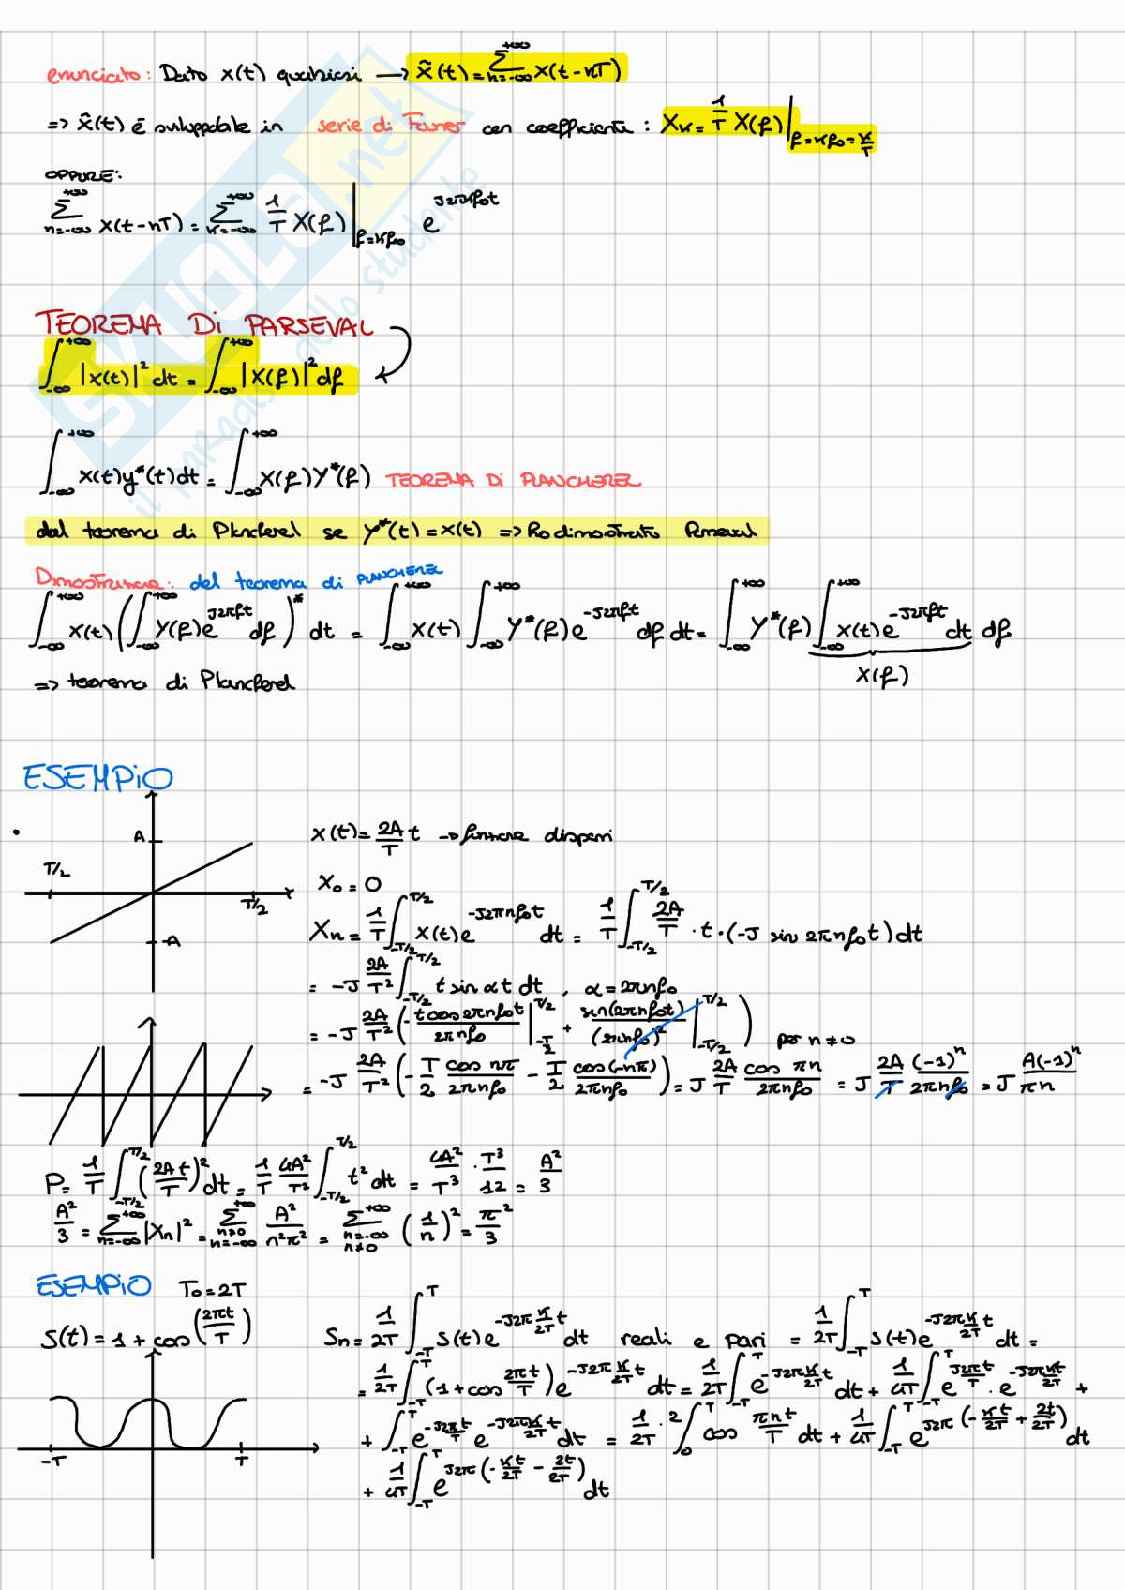 enunciato: Dato x(t) qualsiasi → x̃(t) = Σ_{n=-∞}^{+∞} x(t-nT)
=> x̃(t) è sviluppabile in serie di Fourier con coefficiente: X_k = 1/T X(f)|_{f=kf₀=k/T}
OPPURE:
Σ_{n=-∞}^{+∞} x(t-nT) = Σ_{k=-∞}^{+∞} 1/T X(f)|_{f=kf₀} e^{J2πf₀t}
TEOREMA Di PARSEVAL
∫_{-∞}^{+∞} |x(t)|² dt = ∫_{-∞}^{+∞} |X(f)|² df
∫_{-∞}^{+∞} x(t)y*(t)dt = ∫_{-∞}^{+∞} X(f)Y*(f) TEOREMA DI PLANCHEREL
dal teorema di Plancherel se y*(t) = x(t) => ho dimostrato Parseval
Dimostrazione: del teorema di PLANCHEREL
∫_{-∞}^{+∞} x(t) (∫_{-∞}^{+∞} Y(f)e^{J2πft} df)* dt = ∫_{-∞}^{+∞} x(t) ∫_{-∞}^{+∞} Y*(f)e^{-J2πft} df dt = ∫_{-∞}^{+∞} Y*(f) ∫_{-∞}^{+∞} x(t)e^{-J2πft} dt df
X(f)
=> teorema di Plancherel
ESEMPiO
A
T/2
T/2
-A
x(t) = 2A/T t → funzione dispari
X₀ = 0
X_n = 1/T ∫_{-T/2}^{T/2} x(t)e^{-J2πnf₀t} dt = 1/T ∫_{-T/2}^{T/2} 2A/T · t · (-J sin 2πnf₀t) dt
= -J 2A/T² ∫_{-T/2}^{T/2} t sin αt dt, α = 2πnf₀
= -J 2A/T² (- t cos 2πnf₀t / 2πnf₀ |_{-T/2}^{T/2} + sin(2πnf₀t) / (2πnf₀)² |_{-T/2}^{T/2}) per n≠0
= -J 2A/T² (- T/2 cos nπ / 2πnf₀ - T/2 cos(-nπ) / 2πnf₀) = J 2A/T cos πn / 2πnf₀ = J 2A/T (-1)^n / 2πnf₀ = J A(-1)^n / πn
P = 1/T ∫_{-T/2}^{T/2} (2At/T)² dt = 1/T 4A²/T² ∫_{-T/2}^{T/2} t² dt = 4A²/T³ · T³/12 = A²/3
A²/3 = Σ_{n=-∞}^{+∞} |X_n|² = Σ_{n≠0, n=-∞}^{+∞} A²/n²π² = Σ_{n=-∞, n≠0}^{+∞} (1/n)² = π²/3
ESEMPiO T₀ = 2T
S(t) = 1 + cos(2πt/T)
-T
T
S_n = 1/2T ∫_{-T}^{T} s(t)e^{-J2π k/2T t} dt reali e pari = 1/2T ∫_{-T}^{T} s(t)e^{-J2π k/2T t} dt =
= 1/2T ∫_{-T}^{T} (1 + cos 2πt/T) e^{-J2π k/2T t} dt = 1/2T ∫_{-T}^{T} e^{-J2π k/2T t} dt + 1/4T ∫_{-T}^{T} e^{J2πt/T} · e^{-J2π kt/2T} +
+ ∫_{-T}^{T} e^{-J2πt/T} e^{-J2π k/2T t} dt = 1/2T · 2 ∫_{0}^{T} cos πnt/T dt + 1/4T ∫_{-T}^{T} e^{J2π(-kt/2T + 2t/2T)} dt
+ 1/4T ∫_{-T}^{T} e^{J2π(-kt/2T - 2t/2T)} dt
SKUOLA.net
il paradiso dello studente